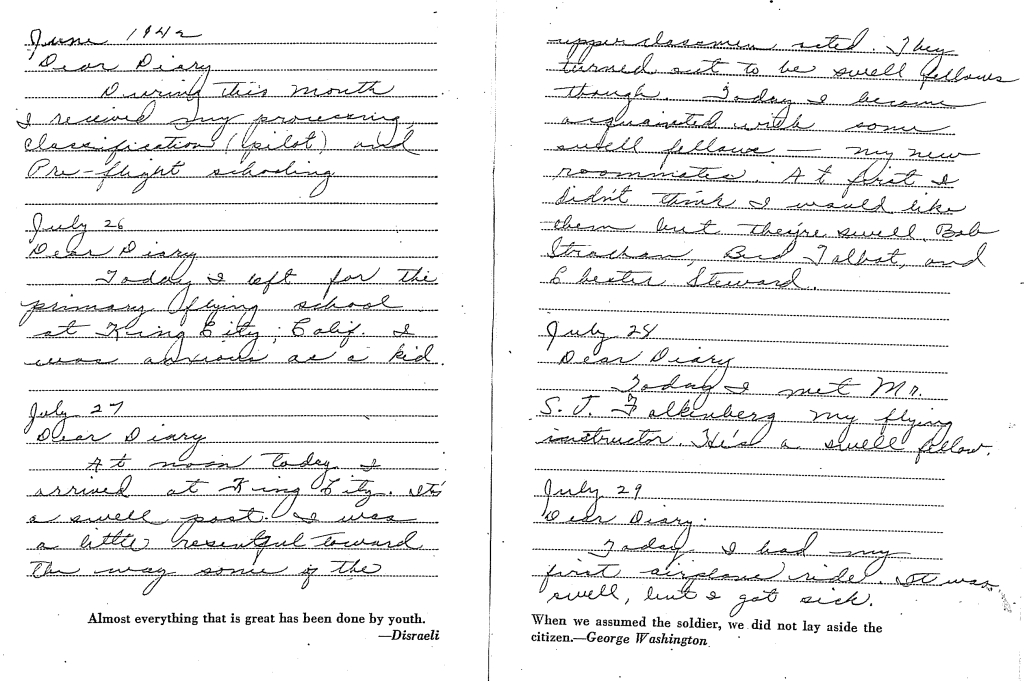 June 1942
Dear Diary
During this month
I received my processing,
classification (pilot) and
Pre-flight schooling
July 26
Dear Diary
Today I left for the
primary flying school
at King City, Calif. I
was anxious as a kid.
July 27
Dear Diary
At noon today I
arrived at King City. It's
a swell post. I was
a little resentful toward
the way some of the
Almost everything that is great has been done by youth.
—Disraeli
upperclassmen acted. They
turned out to be swell fellows
though. Today I became
acquainted with some
swell fellows — my new
roommates. At first I
didn't think I would like
them but they're swell. Bob
Strachan, Bud Talbot, and
Chester Steward.
July 28
Dear Diary
Today I met Mr.
S. J. Falkenberg my flying
instructor. He's a swell fellow.
July 29
Dear Diary:
Today I had my
first airplane ride. It was
swell, but I got sick.
When we assumed the soldier, we did not lay aside the
citizen.—George Washington